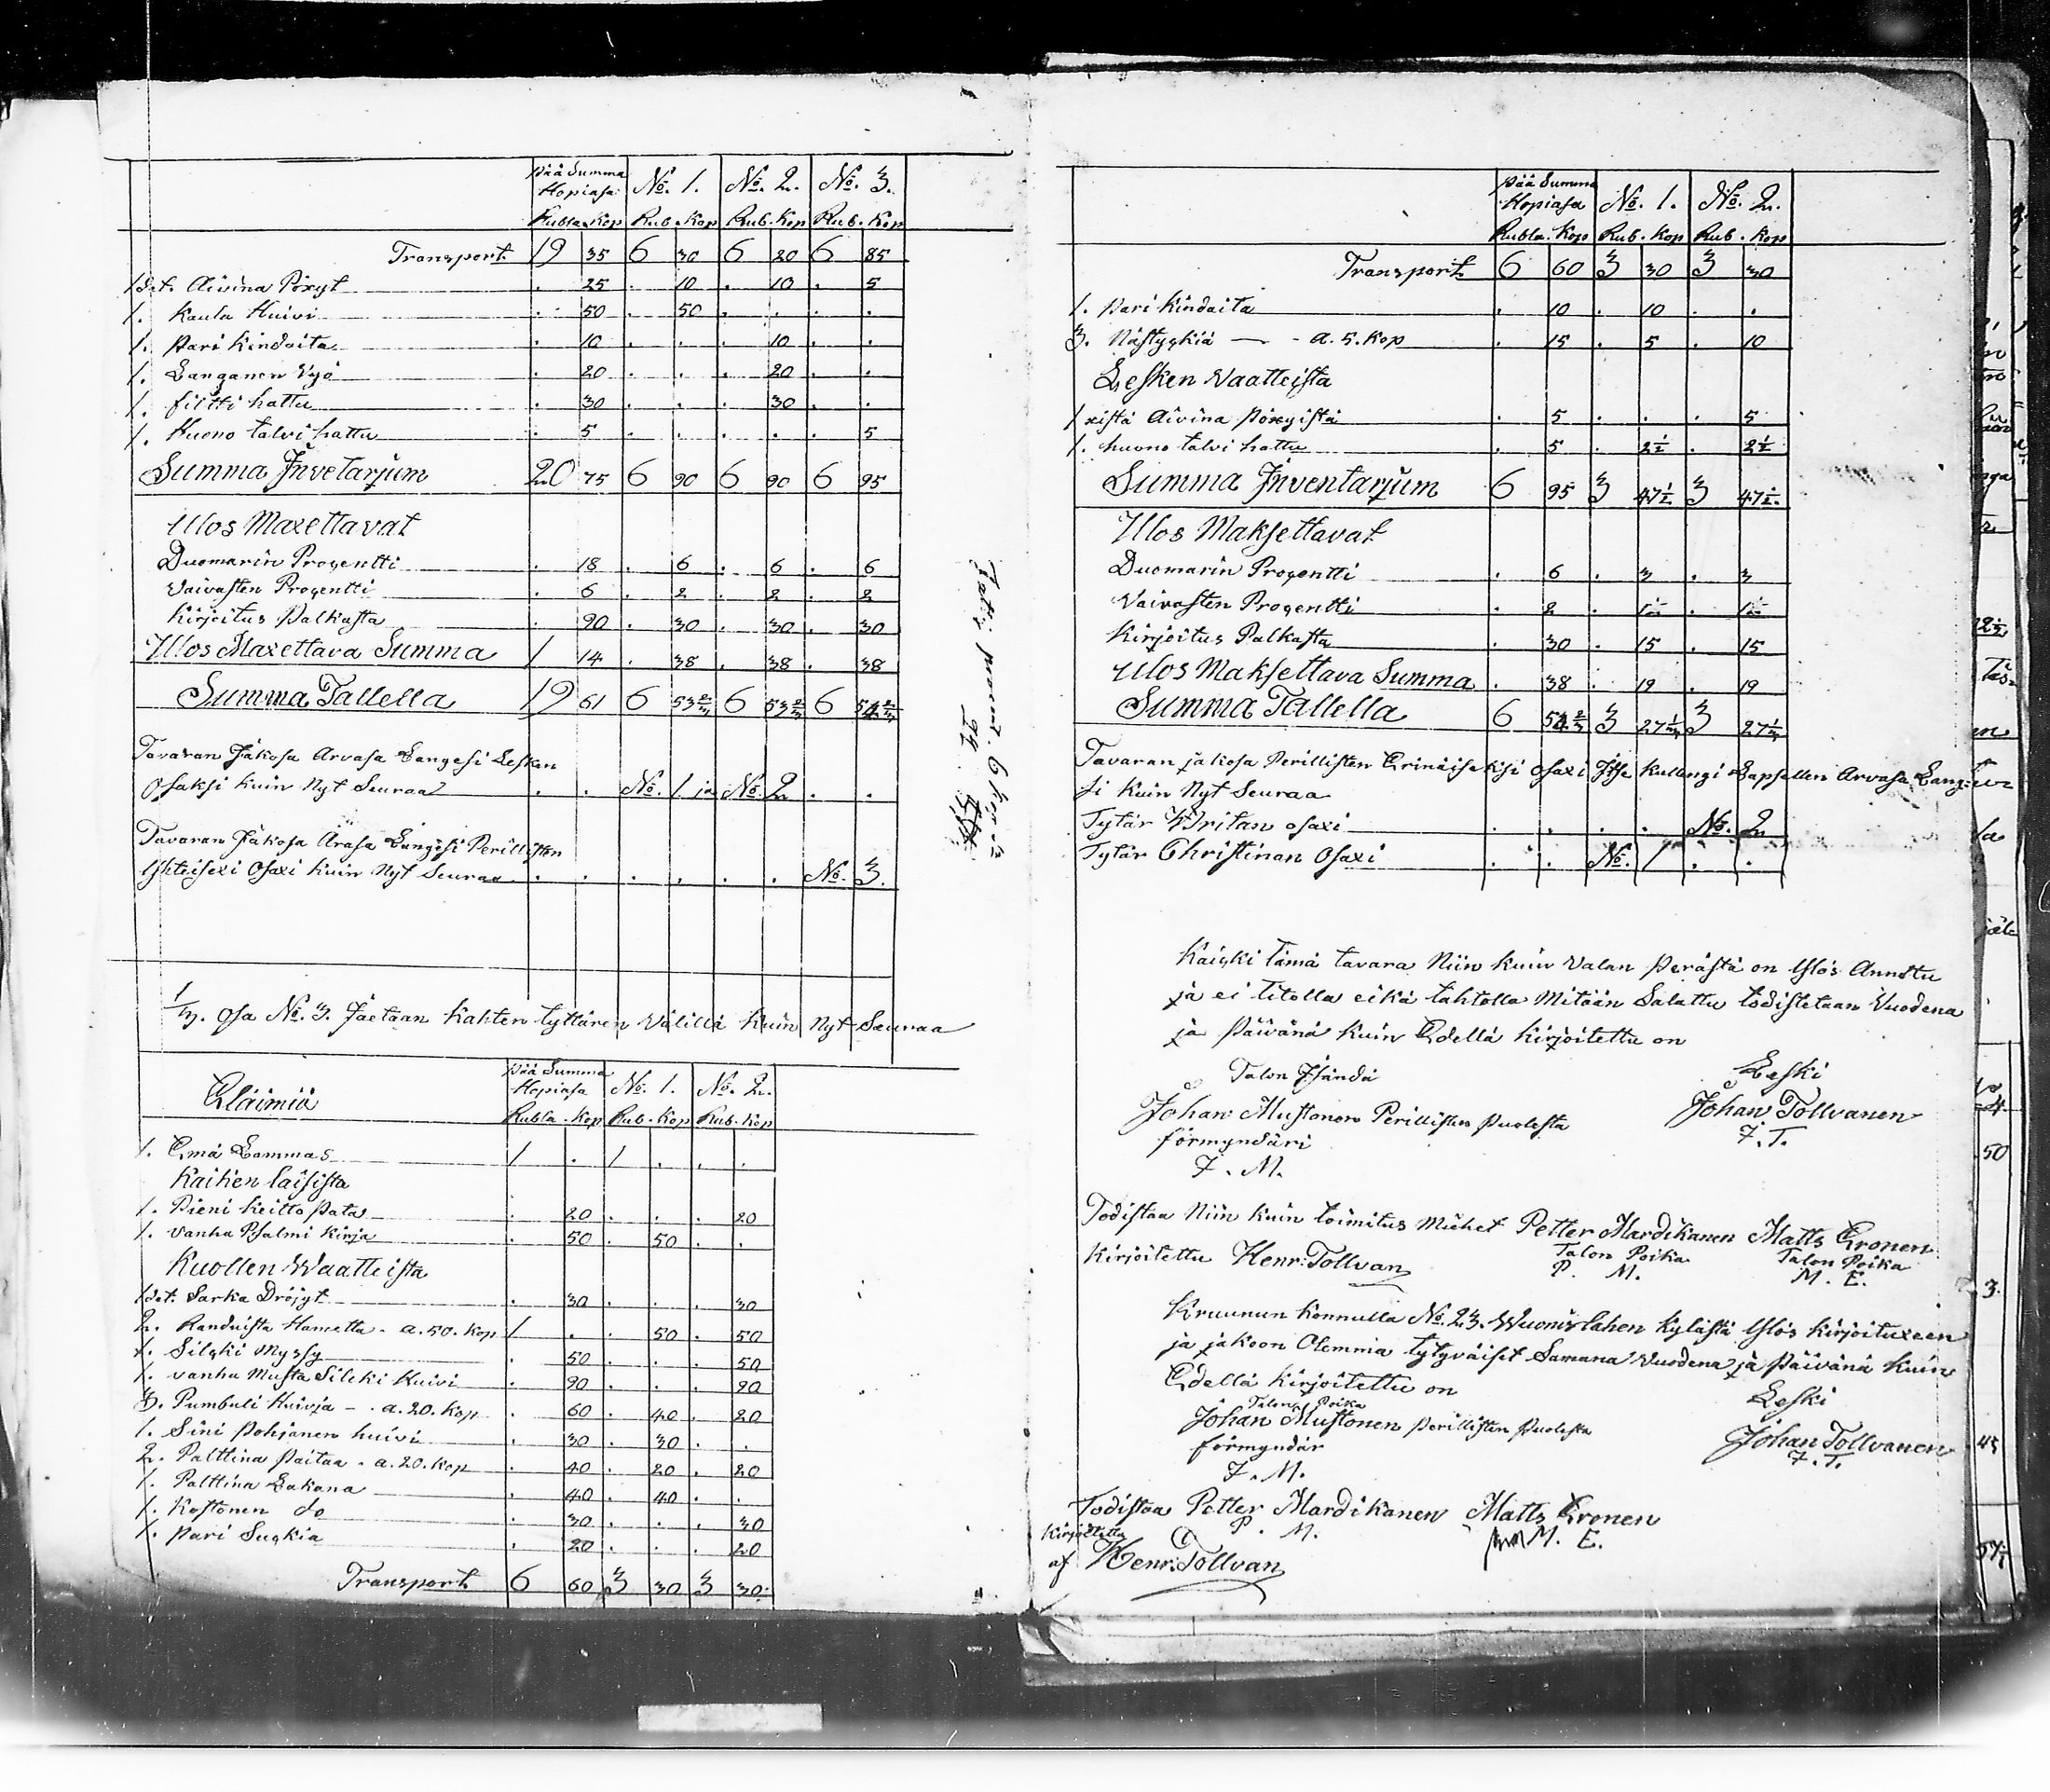 Pää Summa Hopiasa No. 1. No. 2. No. 3.
Rubla. Kop Rub. Kop Rub. Kop Rub. Kop
Transport. 19 35 6 30 6 20 6 85
1 st. Aivina Pöxyt . 25 . 10 . 10 . 5
1. Kaula Huivi . 50 . 50 . . . .
1. Pari Kindaita . 10 . . . 10 . .
1. Langanen Vyö . 20 . . . 20 . .
1. filtti hattu . 30 . . . 30 . .
1. Huono talvi hattu . 5 . . . . . 5
Summa Invetarjum 20 75 6 90 6 90 6 95
Ulos Maxettavat
Duomarin Procentti . 18 . 6 . 6 . 6
Vaivasten Procentti . 6 . 2 . 2 . 2
Kirjoitus Palkasta . 90 . 30 . 30 . 30
Ulos Maxettava Summa 1 14 . 38 . 38 . 38
Summa Tallella 19 61 6 53 2/3 6 53 2/3 6 2/3
Tavaran Jakosa Arvasa Langesi Lesken
Osaksi kuin Nyt Seuraa . . No. 1 ja No. 2 . .
Tavaran Jakosa Arasa Langesi Perillisten
Yhteisexi Osaxi kuin Nyt Seuraa . . . . . . No. 3.
Osa No. 3. Jaetaan Kahten tyttären Välillä kuin Nyt Seuraa
Pää Summa Hopiasa No. 1. No. 2.
Eläimiä Rubla. Kop Rub. Kop Rub. Kop
1. Emä Lammas 1 . 1 . . .
Kaiken laisista
1. Pieni Keitto Pata . 20 . . . 20
1. Vanha Psalmi Kirja . 50 . 50 . .
Kuollen Waatteista
1 st. Sarka Dröjyt . 30 . . . 30
2. Randuista Hametta - a. 50. Kop 1 . . 50 . 50
1. Silcki Myssy . 50 . . . 50
1. Vanha Musta Silcki Huivi . 90 . . . 90
3. Pumbuli Huivja - . a. 20. Kop . 60 . 40 . 20
1. Sini Pohjanen huivi . 30 . 30 . .
2. Palttina Paitaa - a. 20. Kop . 40 . 20 . 20
1. Palttina Lakana . 40 . 40 . .
1. Kostonen do . 30 . . . 30
1. Pari Suckia . 20 . . . 20
Transport 6 60 3 30 3 30
Pää Summa Hopiasa No. 1. No. 2.
Rubla. Kop Rub. Kop Rub. Kop
Transport 6 60 3 30 3 30
1. Pari Kindaita . 10 . 10 . .
3. Nästyckiä — - a. 5. Kop . 15 . 5 . 10
Lesken Vaatteista
1 xistä Aivina Pöxyistä . 5 . . . 5
1. huono talvi hattu . 5 . 2 1/2 . 2 1/2
Summa Inventarjum 6 95 3 47 1/2 3 47 1/2
Ulos Maksettavat
Duomarin Procentti . 6 . 3 . 3
Vaivasten Procentti . 2 . 1 . 1
Kirjoitus Palkasta . 30 . 15 . 15
Ulos Maksettava Summa . 38 . 19 . 19
Summa Tallella 6 2/3 3 27 1/3 3 27 1/3
Tavaran jakosa Perillisten Erinäiseksi osaxi Itse Kullengi Lapsellen Arvasa Lange
si Kuin Nyt Seuraa
Tytär Writan osaxi . . . . No. 2
Tytär Christinan Osaxi . . No. 1 . .
Kaicki tämä tavara Niin kuin Valan Perästä on Ylös Annettu
ja ei titolla eikä tahtolla Mitään Salattu todistetaan Vuodena
ja Päivänä Kuin Edellä Kirjoitettu on
Talon Isändä Leski
Johan Mustonen Perillisten Puolesta Johan Tollvanen
förmyndäri J. T.
J. M.
Todistaa Niin kuin toimitus Miehet Petter Mardikanen Matts Eronen
Kirjoitettu Henr: Tollvan Talon Poika Talon Poika
P. M. M. E.
Kruunun Konnulla No. 23. Wuonislahen Kylästä Ylös Kirjoituxeen
ja jakoon Olemma tytyväiset Samana Vuodena ja Päivänä Kuin
Edellä Kirjoitettu on Leski
Talon Poika
Johan Mustonen Perillisten Puolesta Johan Tollvanen
förmyndär J. T.
J. M.
Todistaa Petter Mardikanen Matts Eronen
Kirjoitettu P. M. M. E.
af Henr: Tollvan